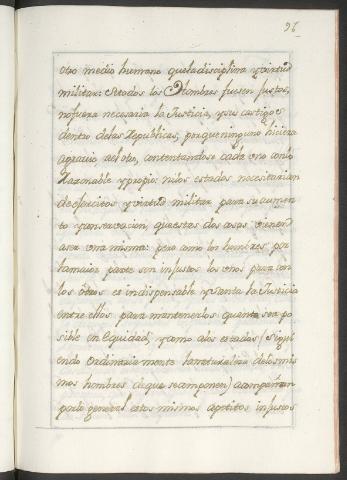 96
otro medio humano que la disciplina y virtud
militar: si todos los Hombres fuesen justos,
no fuera necesaria la Justicia, y sus castigos
dentro de las Republicas, porque ninguno hiciera
agravio al otro, contentandose cada uno con lo
Razonable y propio: ni los estados necesitarian
de exercitos y virtud militar para su aumen
to y conservacion, que estas dos cosas vienen
a ser una misma: pero como los hombres por
la maior parte son injustos los unos para con
los otros es indispensable y santa la Justicia
entre ellos para mantenerlos quanto sea po
sible en Equidad, y como a los estados (sigui
endo ordinariamente la naturaleza de los mis
mos hombres de que se componen) acompañan
por lo general estos mismos apetitos injustos